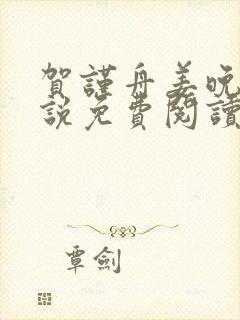 賀謹舟姜晚
說免費閱讀
覃劍